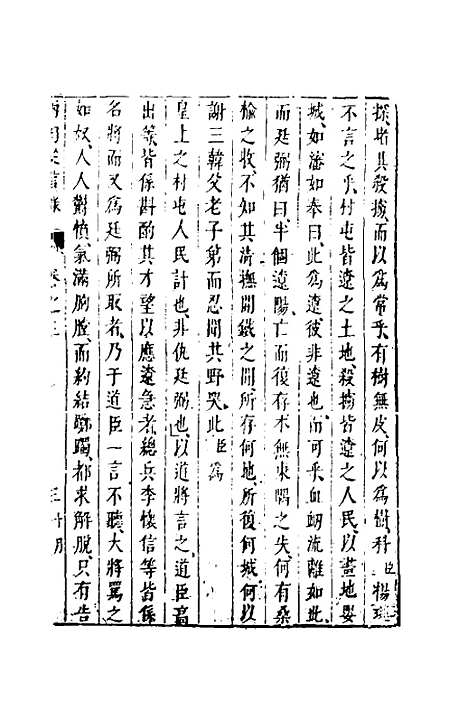 探堵其殺擄而以爲常乎有樹無皮何以爲樹科臣楊
不言之乎村屯皆遼之土地殺擄皆遼之人民以畫地嬰
城如瀋如奉曰此爲遼彼非遼也而可乎血衂流離如此
而廷弼猶曰半個遼陽亡而復存本無東隅之失何有桑
榆之收不知其清撫開鐵之間所存何地所復何城何以
謝三韓父老子弟而忍聞其野哭此臣爲
皇上之村屯人民計也非仇廷弼也以道將言之道臣高
出等皆係斟酌其才望以應遼急者總兵李懷信等皆係
名將而又爲廷弼所取者乃于道臣一言不聽大將罵之
如奴人人鬱憤氣滿胸膛而約結躑躅都求解脫只有告
卷之三 三十